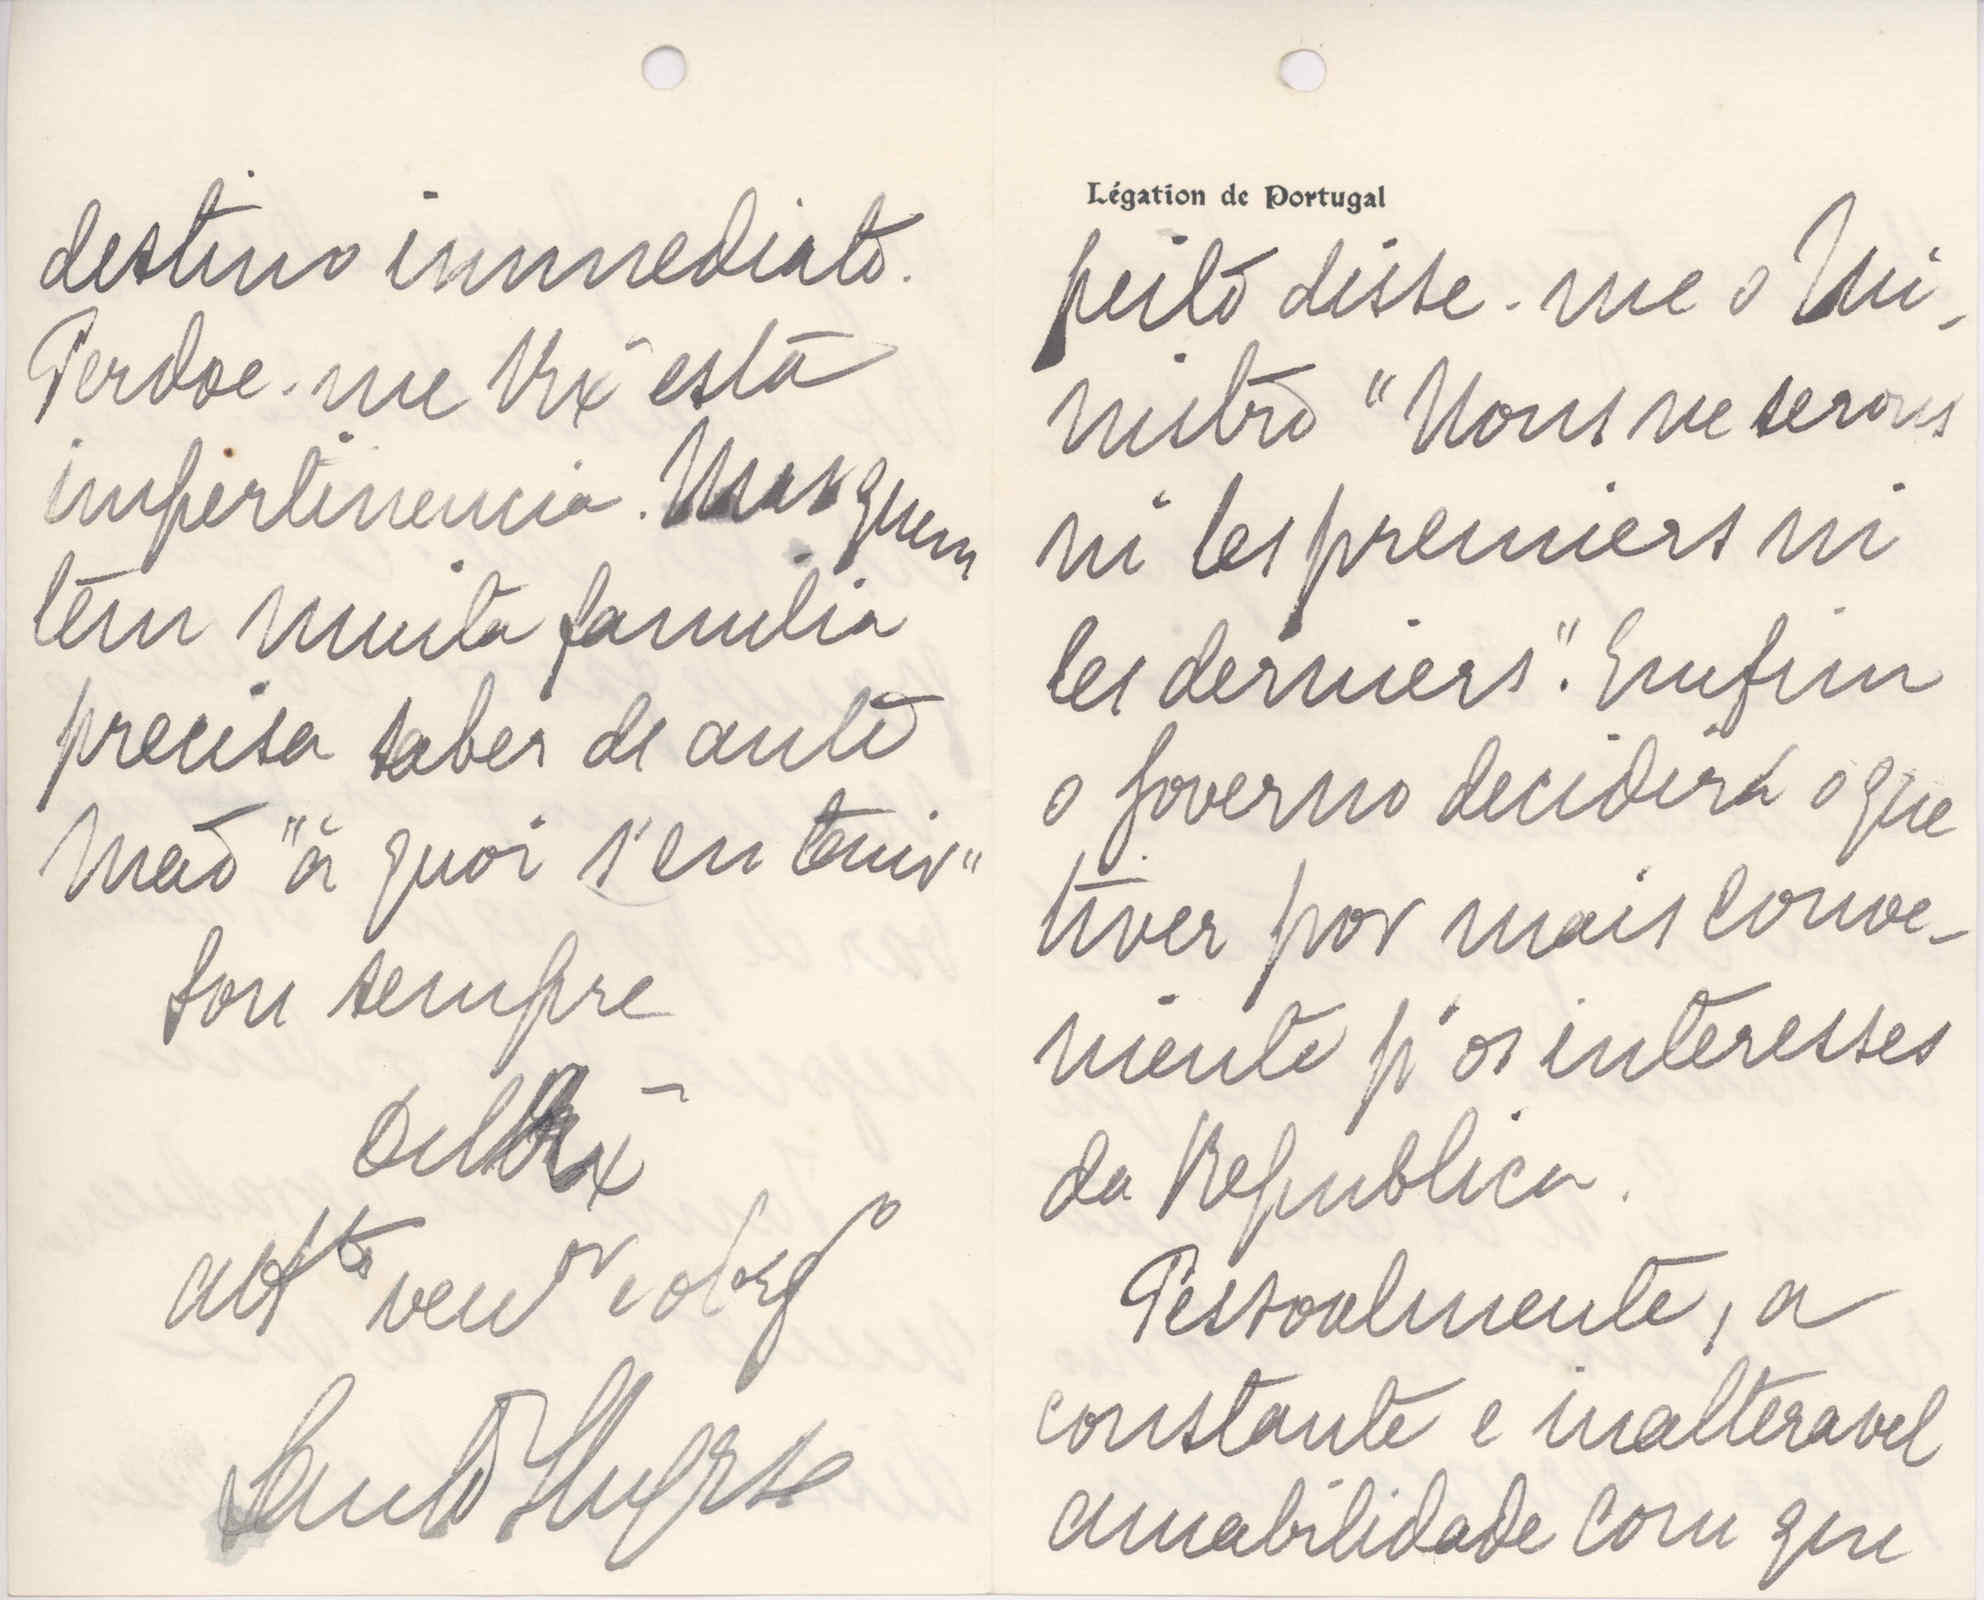 destino immediato.
Perdoe-me Vex.ª esta
impertinencia. Mas quem
tem muita familia
precisa saber de ante
mão "à quoi s'en tenir"
Sou sempre
De Vex.ª
att.to ven.or e obrg.o
Légation de Portugal
peito disse-me o Mi-
nistro "Nous ne serons
ni les premiers ni
les derniers". Emfim
o Governo decidirá o que
tiver por mais conve-
niente p.ª os interesses
da Republica.
Pessoalmente, a
constante e inalteravel
amabilidade com que